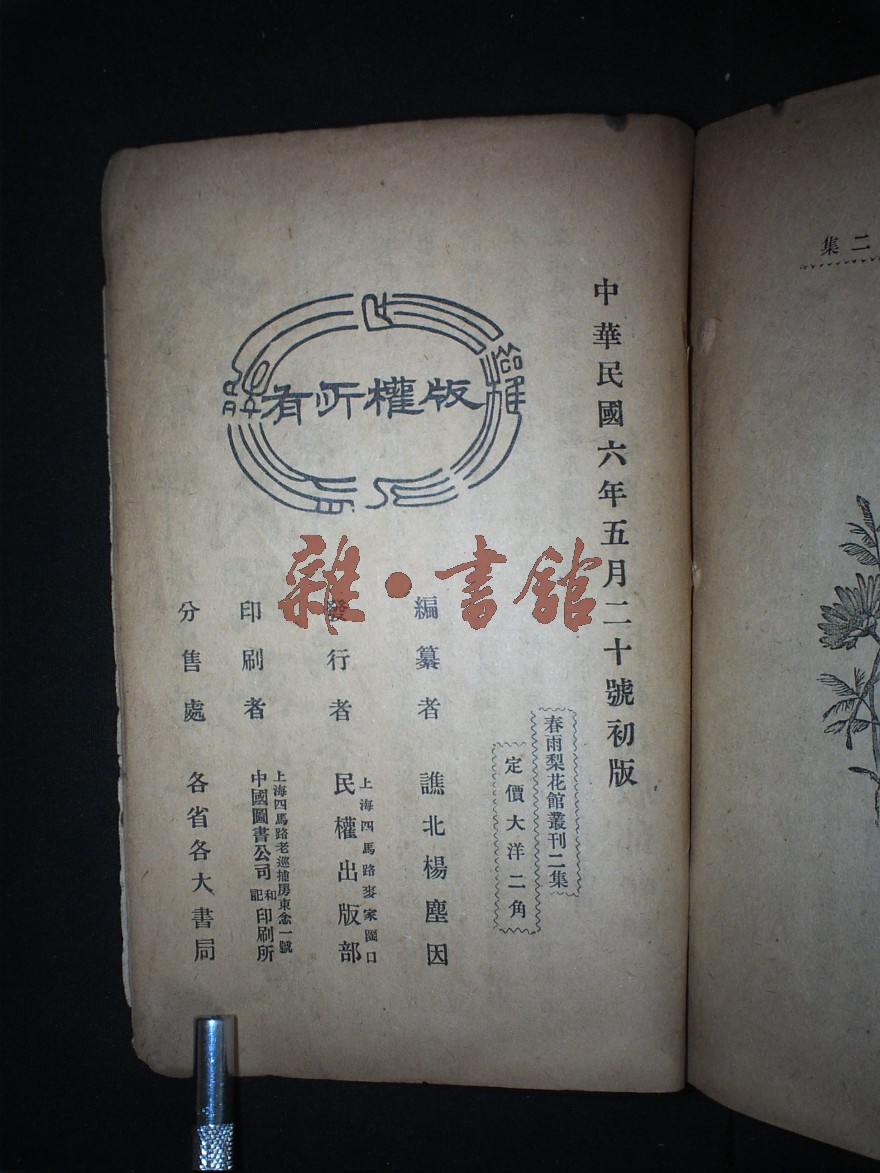 中華民國六年五月二十號初版
春雨梨花館叢刊二集
定價大洋二角
編纂者 譙北楊塵因
發行者 上海四馬路麥家圈口
民權出版部
印刷者 上海四馬路老巡捕房東念一號
中國圖書公司和記印刷所
分售處 各省各大書局
版權所有
雜·書館
二集